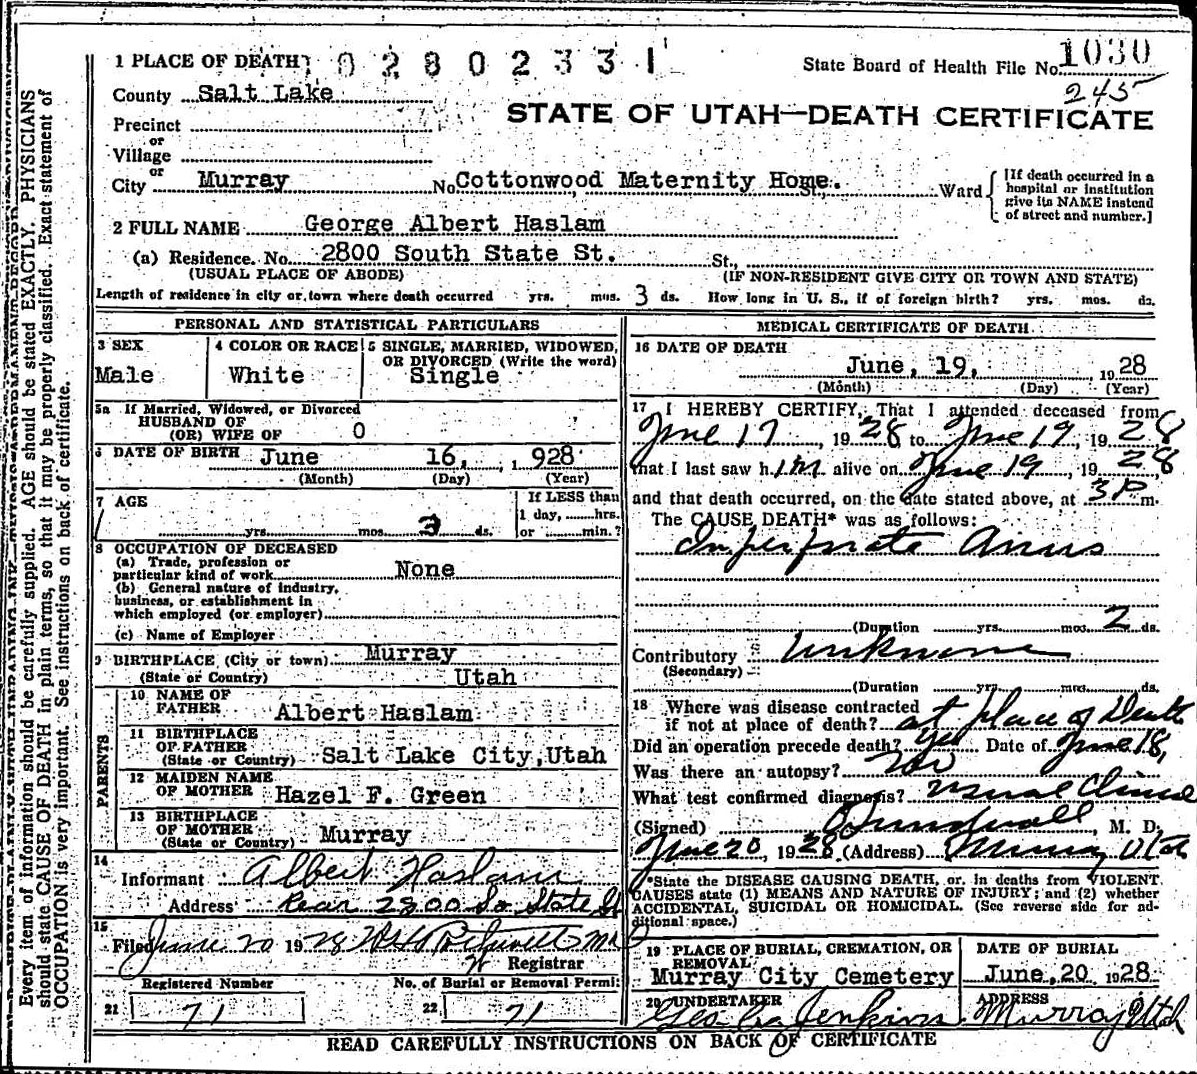 1 PLACE OF DEATH 02802331
State Board of Health File No. 1030
245
County Salt Lake
STATE OF UTAH—DEATH CERTIFICATE
Precinct
or
Village
or
City Murray No. Cottonwood Maternity Home. St., Ward
[If death occurred in a hospital or institution give its NAME instead of street and number.]
2 FULL NAME George Albert Haslam
(a) Residence. No. 2800 South State St. St.,
(USUAL PLACE OF ABODE) (IF NON-RESIDENT GIVE CITY OR TOWN AND STATE)
Length of residence in city or town where death occurred yrs. mos. 3 ds. How long in U. S., if of foreign birth? yrs. mos. ds.
PERSONAL AND STATISTICAL PARTICULARS
3 SEX
Male
4 COLOR OR RACE
White
5 SINGLE, MARRIED, WIDOWED,
OR DIVORCED (Write the word)
Single
5a If Married, Widowed, or Divorced
HUSBAND OF
(OR) WIFE OF O
6 DATE OF BIRTH June 16, 1928
(Month) (Day) (Year)
7 AGE
yrs. mos. 3 ds.
If LESS than
1 day, hrs.
or min.?
8 OCCUPATION OF DECEASED
(a) Trade, profession or
particular kind of work None
(b) General nature of industry,
business, or establishment in
which employed (or employer)
(c) Name of Employer
9 BIRTHPLACE (City or town) Murray
(State or Country) Utah
PARENTS
10 NAME OF
FATHER Albert Haslam
11 BIRTHPLACE
OF FATHER
(State or Country) Salt Lake City, Utah
12 MAIDEN NAME
OF MOTHER Hazel F. Green
13 BIRTHPLACE
OF MOTHER
(State or Country) Murray
14
Informant Albert Haslam
Address Rear 2800 So State St
15
Filed June 20 1928
Registrar
Registered Number
21 71
No. of Burial or Removal Permit
22 71
MEDICAL CERTIFICATE OF DEATH
16 DATE OF DEATH
June, 19, 1928
(Month) (Day) (Year)
17 I HEREBY CERTIFY, That I attended deceased from
June 17, 1928 to June 19, 1928
that I last saw him alive on June 19, 1928
and that death occurred, on the date stated above, at 3P m.
The CAUSE DEATH* was as follows:
Imperforate Anus
(Duration yrs. mos. 2 ds.
Contributory Unknown
(Secondary)
(Duration yrs. mos. ds.
18 Where was disease contracted
if not at place of death? at place of Death
Did an operation precede death? yes Date of June 18,
Was there an autopsy? No
What test confirmed diagnosis? usual Clinical
(Signed) Sundwall, M. D.
June 20, 1928 (Address) Murray Utah
*State the DISEASE CAUSING DEATH, or. in deaths from VIOLENT
CAUSES state (1) MEANS AND NATURE OF INJURY; and (2) whether
ACCIDENTAL, SUICIDAL OR HOMICIDAL. (See reverse side for ad-
ditional space.)
19 PLACE OF BURIAL, CREMATION, OR
REMOVAL
Murray City Cemetery
DATE OF BURIAL
June, 20, 1928
20 UNDERTAKER
Jenkins
ADDRESS
Murray Utah
READ CAREFULLY INSTRUCTIONS ON BACK OF CERTIFICATE
Every item of information should be carefully supplied. AGE should be stated EXACTLY. PHYSICIANS
should state CAUSE OF DEATH in plain terms, so that it may be properly classified. Exact statement of
OCCUPATION is very important. See instructions on back of certificate.